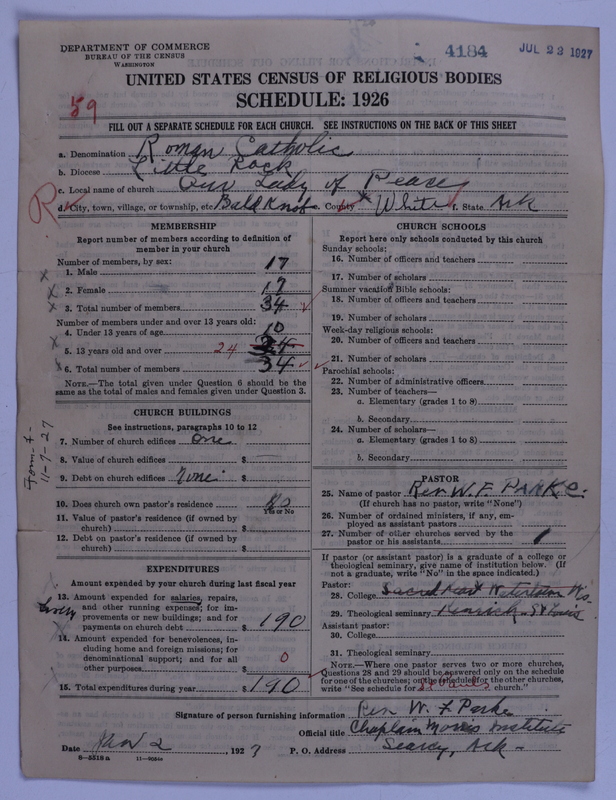 DEPARTMENT OF COMMERCE
BUREAU OF THE CENSUS
WASHINGTON
4184
JUL 23 1927
UNITED STATES CENSUS OF RELIGIOUS BODIES
SCHEDULE: 1926
59
FILL OUT A SEPARATE SCHEDULE FOR EACH CHURCH. SEE INSTRUCTIONS ON THE BACK OF THIS SHEET
a. Denomination Roman Catholic
b. Diocese Little Rock
c. Local name of church Our Lady of Peace
R
d. City, town, village, or township, etc. Bald Knob e. County White f. State Ark
MEMBERSHIP
Report number of members according to definition of
member in your church
Number of members, by sex:
1. Male 17
2. Female 17
3. Total number of members 34
Number of members under and over 13 years old:
4. Under 13 years of age 10
5. 13 years old and over 24
6. Total number of members 34
NOTE.—The total given under Question 6 should be
the same as the total of males and females given under Question 3.
CHURCH BUILDINGS
See instructions, paragraphs 10 to 12
7. Number of church edifices one
8. Value of church edifices $
9. Debt on church edifices None $
Form-7-
11-7-27
10. Does church own pastor's residence No
Yes or No
11. Value of pastor's residence (if owned by
church) $
12. Debt on pastor's residence (if owned by
church) $
EXPENDITURES
Amount expended by your church during last fiscal year
13. Amount expended for salaries, repairs,
and other running expenses; for im-
provements or new buildings; and for
payments on church debt $ 190
14. Amount expended for benevolences, in-
cluding home and foreign missions; for
denominational support; and for all
other purposes $ 0
15. Total expenditures during year $ 190
CHURCH SCHOOLS
Report here only schools conducted by this church
Sunday schools:
16. Number of officers and teachers
17. Number of scholars
Summer vacation Bible schools:
18. Number of officers and teachers
19. Number of scholars
Week-day religious schools:
20. Number of officers and teachers
21. Number of scholars
Parochial schools:
22. Number of administrative officers
23. Number of teachers—
a. Elementary (grades 1 to 8)
b. Secondary
24. Number of scholars—
a. Elementary (grades 1 to 8)
b. Secondary
PASTOR
25. Name of pastor Rev W. F. Parke.
(If church has no pastor, write "None")
26. Number of ordained ministers, if any, em-
ployed as assistant pastors
27. Number of other churches served by the
pastor or his assistants 1
If pastor (or assistant pastor) is a graduate of a college or
theological seminary, give name of institution below. (If
not a graduate, write "No" in the space indicated.)
Pastor:
28. College Sacred Heart Watertown Wis
29. Theological seminary Kenrick St Louis
Assistant pastor:
30. College
31. Theological seminary
NOTE.—Where one pastor serves two or more churches,
Questions 28 and 29 should be answered only on the schedule
for one of the churches; on the schedule for the other churches,
write "See schedule for St Pauls church."
Signature of person furnishing information Rev W. F Parke
Official title Chaplain Morris Institute
Date Nov 2, 1923 P. O. Address Searcy, Ark -
8-5518a 11-9054a